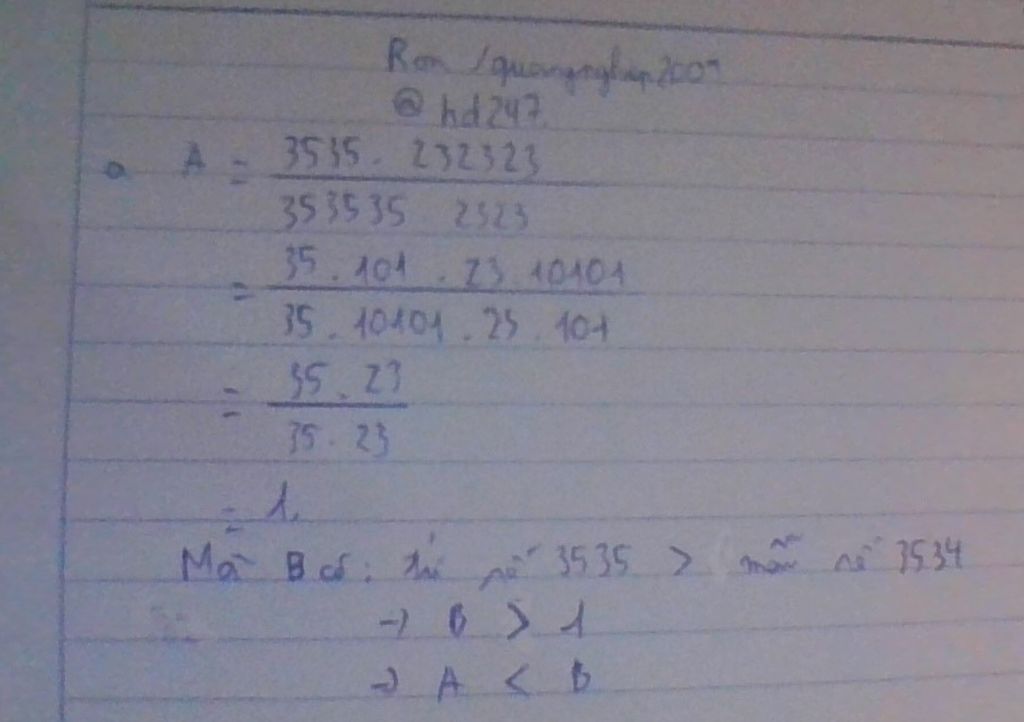 Ron /quangnghiep2009
@ hd247
a A = 3535 . 232323
353535 2323
= 35 . 101 . 23 . 10101
35 . 10101 . 23 . 101
= 35 . 23
35 . 23
= 1.
Mà B có : tử số 3535 > mẫu số 3534
→ B > 1
→ A < B